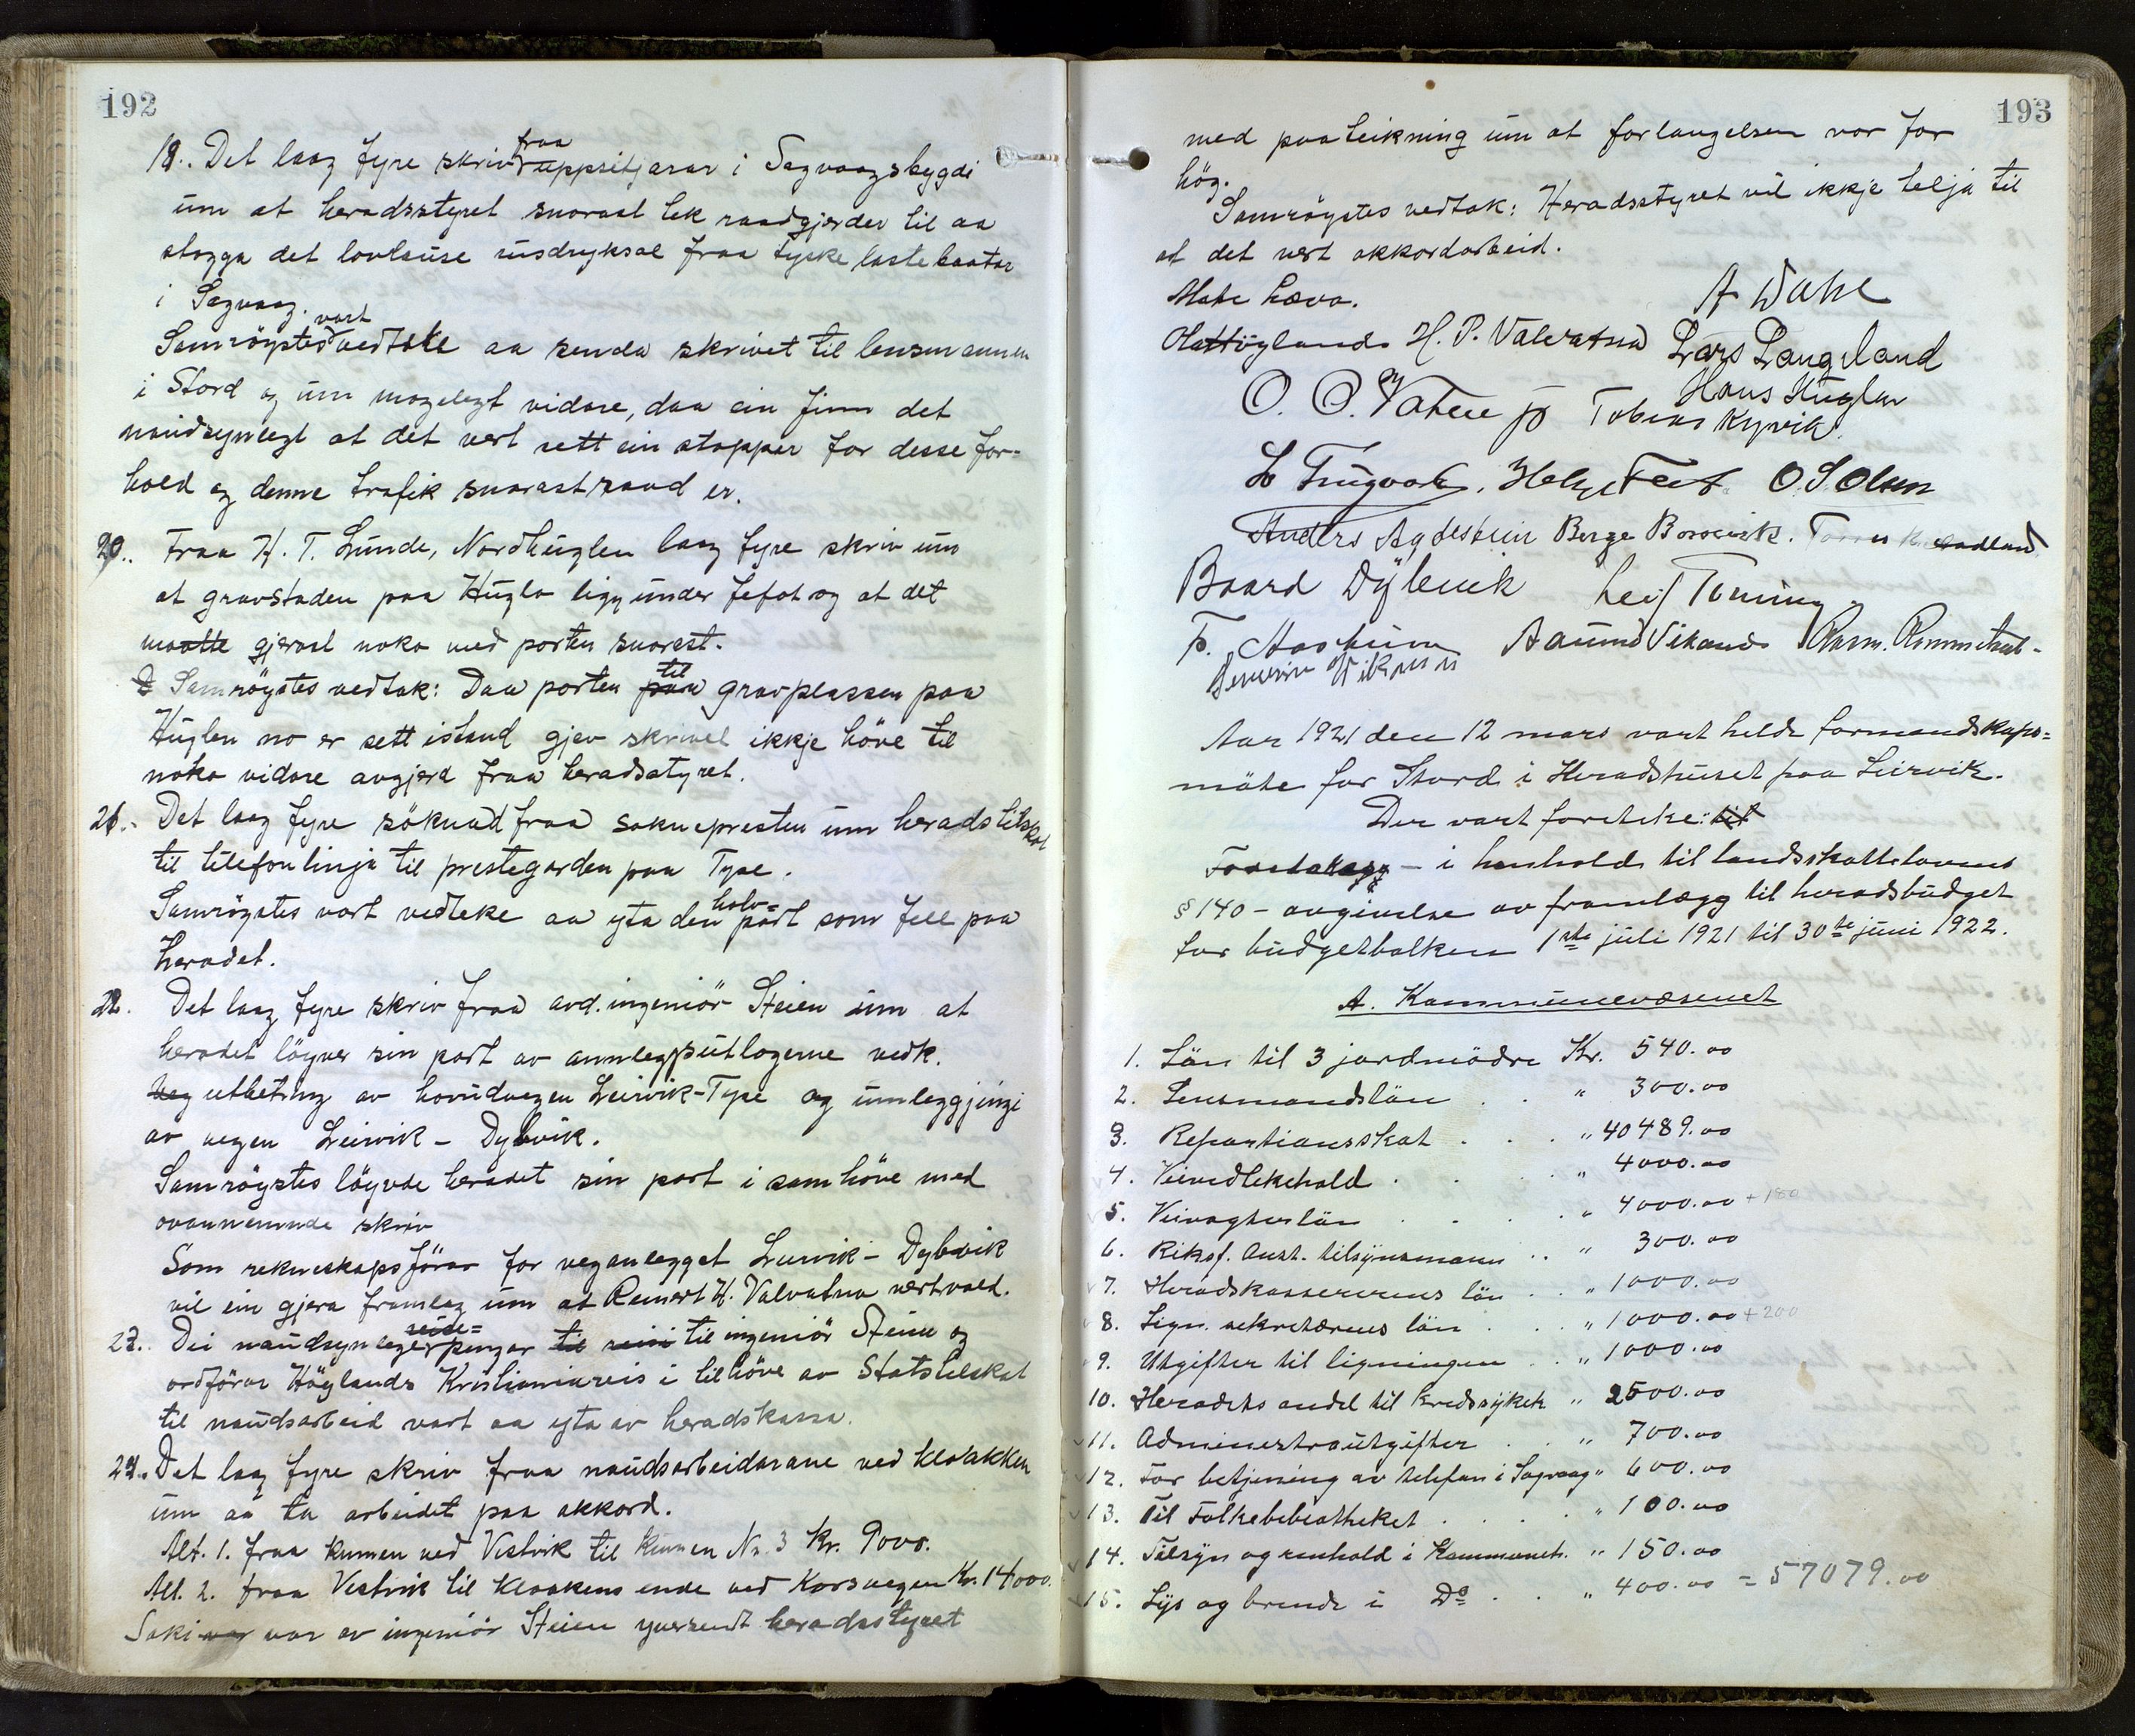 192
19. Det laag fyre skriv fraa uppsitjarar i Sagvaagsbygdi
um at heradsstyret snorast tek raadgjerder til aa
stogga det lovlause rusdryksal fraa tyske lastebaatar
i Sagvaag.
Samröystes vart vedteke aa senda skrivet til lensmannen
i Stord og um mogelegt vidare, daa ein finn det
naudsynlegt at det vert sett ein stopper for desse for-
hold og denne trafik snarast raad er.
20. Fraa H. T. Lunde, Nordhuglen laag fyre skriv um
at gravstaden paa Hugla ligg under fefot og at det
maatte gjerast noko med porten snarest.
Samröystes vedtak: Daa porten til gravplassen paa
Huglen no er sett istand gjev skrivet ikkje höve til
noko vidare avgjerd fraa heradsstyret.
21. Det laag fyre söknad fraa soknepresten um heradstilskot
til telefonlinja til prestegarden paa Tyse.
Samröystes vart vedteke aa yta den halv-part som fell paa
heradet.
22. Det laag fyre skriv fraa avd. ingeniör Steien um at
heradet löyver sin part av annleggsutlogerne vedk.
veg utbetring av hovudvegen Leirvik-Tyse og umleggjingi
av vegen Leirvik - Dybvik.
Samröystes löyvde heradet sin part i samhöve med
ovannemnde skriv
Som rekneskapsförar for veganlegget Leirvik - Dybvik
vil ein gjera framlag um at Reinert H. Valvatna vert vald.
23. Dei naudsynlege reise-pengar til reisi til ingeniör Steien og
ordförar Höylands Kristianiareis i tilhöve av Statstilskot
til naudsarbeid vart aa yta av heradskassa.
24. Det laag fyre skriv fraa naudsarbeidarane ved kloakken
um aa ta arbeidet paa akkord.
Alt. 1. fraa kumen ved Vestvik til kumen Nr. 3 Kr. 9000.
Alt. 2. fraa Vestvik til kloakens ende ved Korsvegen Kr. 14000.
Saki var var av ingeniör Steien yversendt heradsstyret
193
med paateikning um at forlangelsen var for
hög.
Samröystes vedtak: Heradsstyret vil ikkje telja til
at det vert akkordarbeid.
Möte hæva.
A Dahl
H. P. Valvatna Lars Langeland
Hans Huglen
O. O. Vatne Tobias Kyvik
Helge Teet O. S. Olsen
Anders Agdestein Berge Borsvik.
Baard Dybvik Leif Törning
Aamund Vikanes
Severin Vikanes
Aar 1921 den 12 mars vart heldt formandskaps=
möte for Stord i Heradshuset paa Leirvik.
Der vart foreteke: til
Foretakagg - i henhold til landsskattelovens
§ 140 - avgivelse av framlegg til heradsbudget
for budgetbolken 1ste juli 1921 til 30te juni 1922.
A. Kommunevæsenet
1. Lön til 3 jordmödre Kr. 540.00
2. Lensmandslön . . " 300.00
3. Repartionsskat . . . " 40489.00
4. Veivedlikehold . . . " 4000.00
5. Veivogterlön . . . " 4000.00 + 180
6. Riksf. anst. tilsynsmann . . " 300.00
7. Heradskassererens lön . . " 1000.00
8. Lign. sekretærens lön . . " 1000.00 + 200
9. Utgifter til ligningen . . " 1000.00
10. Heradets andel til kredssykek " 2500.00
11. Administrautgifter . . " 700.00
12. For betjening av telefon i Sagvaag " 600.00
13. Til Folkebibliotheket . . . " 100.00
14. Tilsyn og renhold i Kommuneh. " 150.00
15. Lys og brende i Do . . " 400.00 = 57079.00